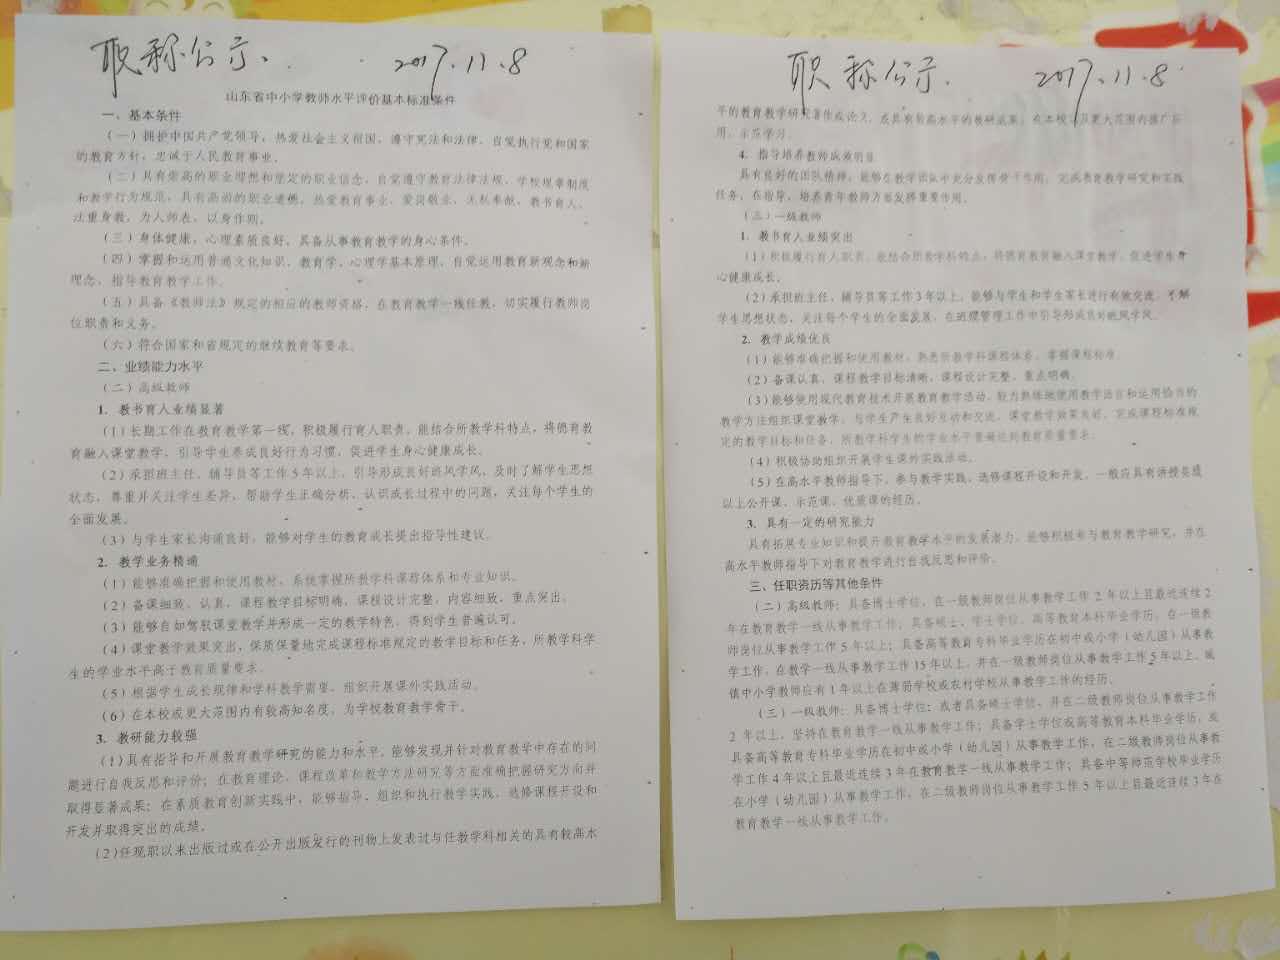 职称公示.
2017.11.8
山东省中小学教师水平评价基本标准条件
一、基本条件
（一）拥护中国共产党领导，热爱社会主义祖国，遵守宪法和法律，自觉执行党和国家
的教育方针，忠诚于人民教育事业。
（二）具有崇高的职业理想和坚定的职业信念，自觉遵守教育法律法规、学校规章制度
和教学行为规范，具有高尚的职业道德，热爱教育事业，爱岗敬业，无私奉献，教书育人，
注重身教，为人师表，以身作则。
（三）身体健康，心理素质良好，具备从事教育教学的身心条件。
（四）掌握和运用普通文化知识、教育学、心理学基本原理，自觉运用教育新观念和新
理念，指导教育教学工作。
（五）具备《教师法》规定的相应的教师资格，在教育教学一线任教，切实履行教师岗
位职责和义务。
（六）符合国家和省规定的继续教育等要求。
二、业绩能力水平
（二）高级教师
1. 教书育人业绩显著
（1）长期工作在教育教学第一线，积极履行育人职责，能结合所教学科特点，将德育教
育融入课堂教学，引导学生养成良好行为习惯，促进学生身心健康成长。
（2）承担班主任、辅导员等工作5年以上，引导形成良好班风学风，及时了解学生思想
状态，尊重并关注学生差异，帮助学生正确分析、认识成长过程中的问题，关注每个学生的
全面发展。
（3）与学生家长沟通良好，能够对学生的教育成长提出指导性建议。
2. 教学业务精通
（1）能够准确把握和使用教材，系统掌握所教学科课程体系和专业知识。
（2）备课细致、认真，课程教学目标明确，课程设计完整，内容细致，重点突出。
（3）能够自如驾驭课堂教学并形成一定的教学特色，得到学生普遍认可。
（4）课堂教学效果突出，保质保量地完成课程标准规定的教学目标和任务，所教学科学
生的学业水平高于教育质量要求。
（5）根据学生成长规律和学科教学需要，组织开展课外实践活动。
（6）在本校或更大范围内有较高知名度，为学校教育教学骨干。
3. 教研能力较强
（1）具有指导和开展教育教学研究的能力和水平，能够发现并针对教育教学中存在的问
题进行自我反思和评价；在教育理论、课程改革和教学方法研究等方面准确把握研究方向并
取得显著成果；在素质教育创新实践中，能够指导、组织和执行教学实践、选修课程开设和
开发并取得突出的成绩。
（2）任现职以来出版过或在公开出版发行的刊物上发表过与任教学科相关的具有较高水
职称公示.
2017.11.8
平的教育教学研究著作或论文，或具有较高水平的教研成果，在本校或更大范围内推广应
用、示范学习。
4. 指导培养教师成效明显
具有良好的团队精神，能够在教学团队中充分发挥骨干作用，完成教育教学研究和实践
任务，在指导、培养青年教师方面发挥重要作用。
（三）一级教师
1. 教书育人业绩突出
（1）积极履行育人职责，能结合所教学科特点，将德育教育融入课堂教学，促进学生身
心健康成长。
（2）承担班主任、辅导员等工作3年以上，能够与学生和学生家长进行有效交流，了解
学生思想状态，关注每个学生的全面发展，在班级管理工作中引导形成良好班风学风。
2. 教学成绩优良
（1）能够准确把握和使用教材，熟悉所教学科课程体系，掌握课程标准。
（2）备课认真，课程教学目标清晰，课程设计完整，重点明确。
（3）能够使用现代教育技术开展教育教学活动，较为熟练地使用教学语言和运用恰当的
教学方法组织课堂教学，与学生产生良好互动和交流，课堂教学效果良好，完成课程标准规
定的教学目标和任务，所教学科学生的学业水平普遍达到教育质量要求。
（4）积极协助组织开展学生课外实践活动。
（5）在高水平教师指导下，参与教学实践、选修课程开设和开发，一般应具有讲授县级
以上公开课、示范课、优质课的经历。
3. 具有一定的研究能力
具有拓展专业知识和提升教育教学水平的发展潜力，能够积极参与教育教学研究，并在
高水平教师指导下对教育教学进行自我反思和评价。
三、任职资历等其他条件
（二）高级教师：具备博士学位，在一级教师岗位从事教学工作2年以上且最近连续2
年在教育教学一线从事教学工作；具备硕士、学士学位、高等教育本科毕业学历，在一级教
师岗位从事教学工作5年以上；具备高等教育专科毕业学历在初中或小学（幼儿园）从事教
学工作，在教学一线从事教学工作15年以上，并在一级教师岗位从事教学工作5年以上。城
镇中小学教师应有1年以上在薄弱学校或农村学校从事教学工作的经历。
（三）一级教师：具备博士学位；或者具备硕士学位，并在二级教师岗位从事教学工作
2年以上，坚持在教育教学一线从事教学工作；具备学士学位或高等教育本科毕业学历，或
具备高等教育专科毕业学历在初中或小学（幼儿园）从事教学工作，在二级教师岗位从事教
学工作4年以上且最近连续3年在教育教学一线从事教学工作；具备中等师范学校毕业学历
在小学（幼儿园）从事教学工作，在二级教师岗位从事教学工作5年以上且最近连续3年在
教育教学一线从事教学工作。